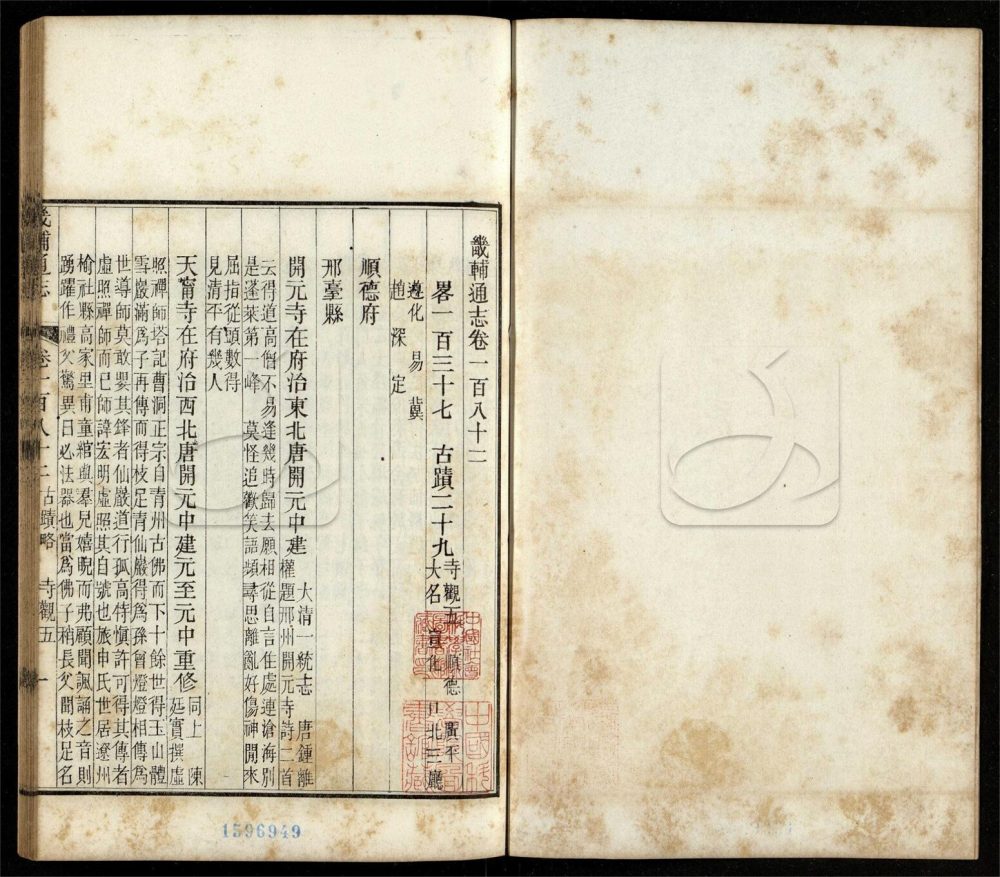 畿輔通志卷一百八十二
畧一百三十七　古蹟二十九　寺觀五　順德　廣平
大名　宣化　口北三廳
遵化　易　冀
趙　深　定
順德府
邢臺縣
開元寺在府治東北唐開元中建　大清一統志　唐鍾離
權題邢州開元寺詩二首
云得道高僧不易逢幾時歸去願相從自言住處連滄海別
是蓬萊第一峰　莫怪追歡笑語頻尋思離亂好傷神閒來
屈指從頭數得
見清平有幾人
天甯寺在府治西北唐開元中建元至元中重修　同上　陳
廷實撰虛
照禪師塔記曹洞正宗自青州古佛而下十餘世得玉山體
雪巖滿爲子再傳而得枝足青仙巖得爲孫曾燈燈相傳爲
世導師莫敢嬰其鋒者仙巖道行孤高特愼許可得其傳者
虛照禪師而已師諱宏明虛照其自號也族申氏世居遼州
榆社縣高家里甫童綰與羣兒嬉睨而弗顧聞諷誦之音則
踴躍作禮父驚異曰必法器也當爲佛子稍長父聞枝足名
畿輔通志　卷一百八十二　古蹟略　寺觀五　一
1596949